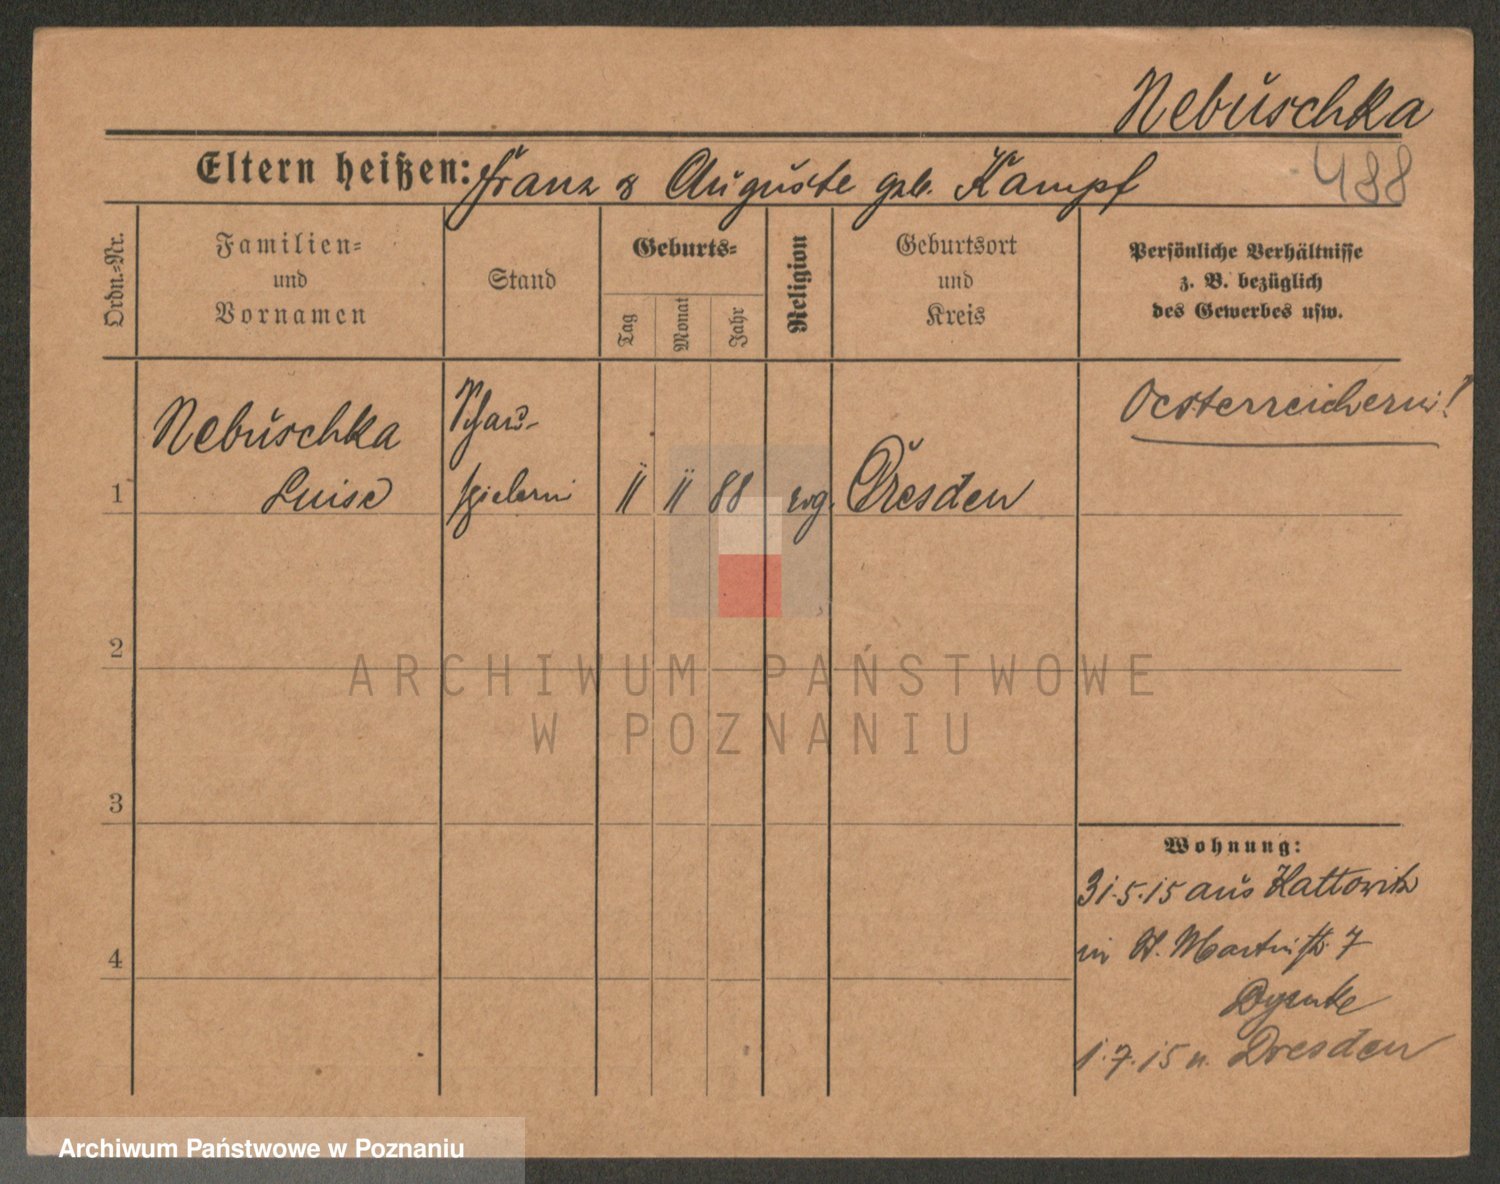 Nebuschka
Eltern heißen: Franz & Auguste geb. Kampf
488
Ordn.-Nr.
Familien-
und
Vornamen
Stand
Geburts-
Tag
Monat
Jahr
Religion
Geburtsort
und
Kreis
Persönliche Verhältnisse
z. B. bezüglich
des Gewerbes usw.
Oesterreicherin!
Nebuschka
Luise
Schau-
spielerin
1
11 11 88 evg. Dresden
2
3
4
Wohnung:
31.5.15 aus Kattowitz
in St. Martinstr. 7
1.7.15 n. Dresden
ARCHIWUM PAŃSTWOWE
W POZNANIU
Archiwum Państwowe w Poznaniu